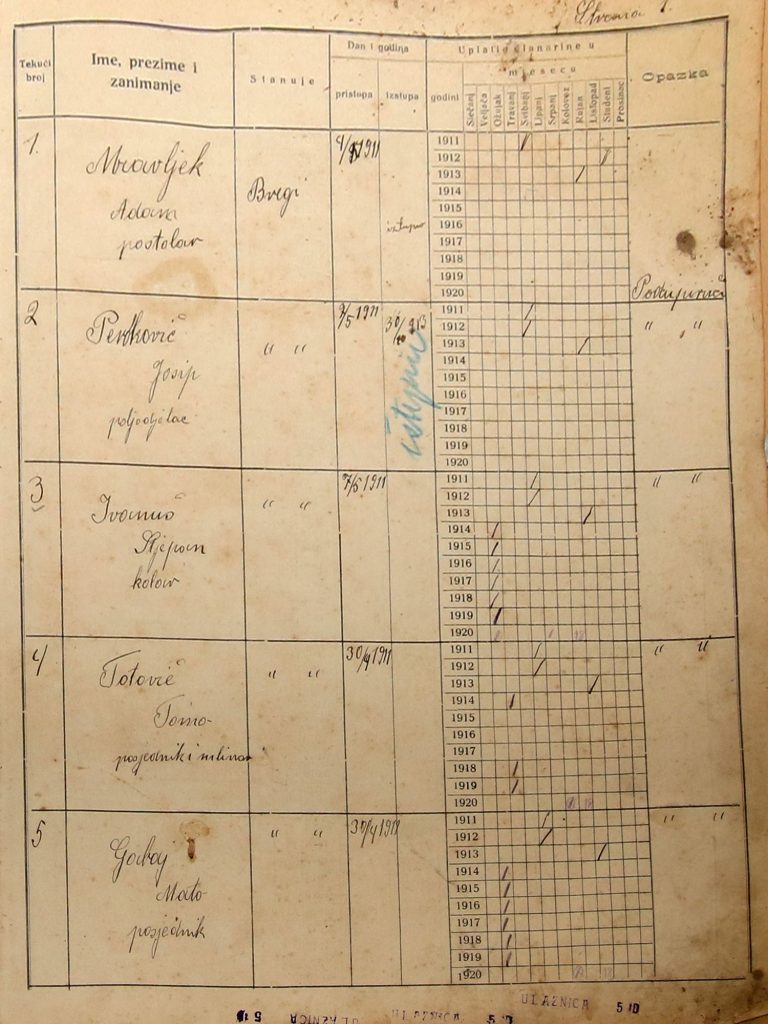 Strana 1.
Tekući broj
Ime, prezime i zanimanje
Stanuje
Dan i godina
pristupa
izstupa
Uplatio članarine u
mjesecu
godini
Siečanj
Veljača
Ožujak
Travanj
Svibanj
Lipanj
Srpanj
Kolovoz
Rujan
Listopad
Studeni
Prosinac
Opazka
1.
Mravljek
Adam
postolar
Bregi
1911
istupio
1911
1912
1913
1914
1915
1916
1917
1918
1919
1920
2
Petković
Josip
poljodjelac
" "
2/5 1911
istupio
1911
1912
1913
1914
1915
1916
1917
1918
1919
1920
" "
3
Ivanuš
Stjepan
kolar
" "
7/5 1911
1911
1912
1913
1914
1915
1916
1917
1918
1919
1920
" "
4
Totović
Tomo
posjednik i mlinar
" "
30/4 1911
1911
1912
1913
1914
1915
1916
1917
1918
1919
1920
" "
5
Gabaj
Mato
posjednik
" "
30/4 1911
1911
1912
1913
1914
1915
1916
1917
1918
1919
1920
" "
ULAZNICA
ULAZNICA
ULAZNICA